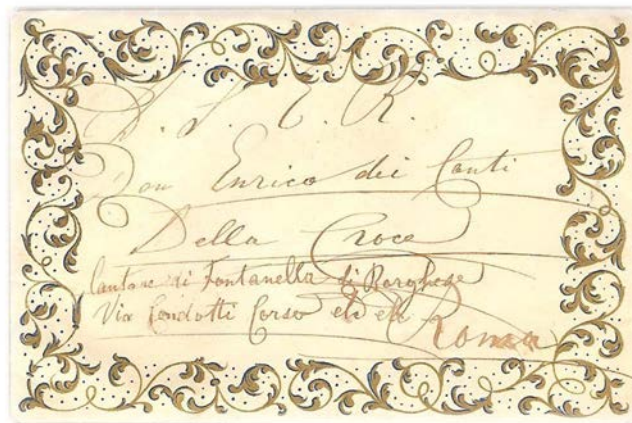 A. S. E. R.
Don Enrico dei Conti
Della Croce
Cantone di Fontanella di Borghese
Via Condotti Corso etc etc
Roma